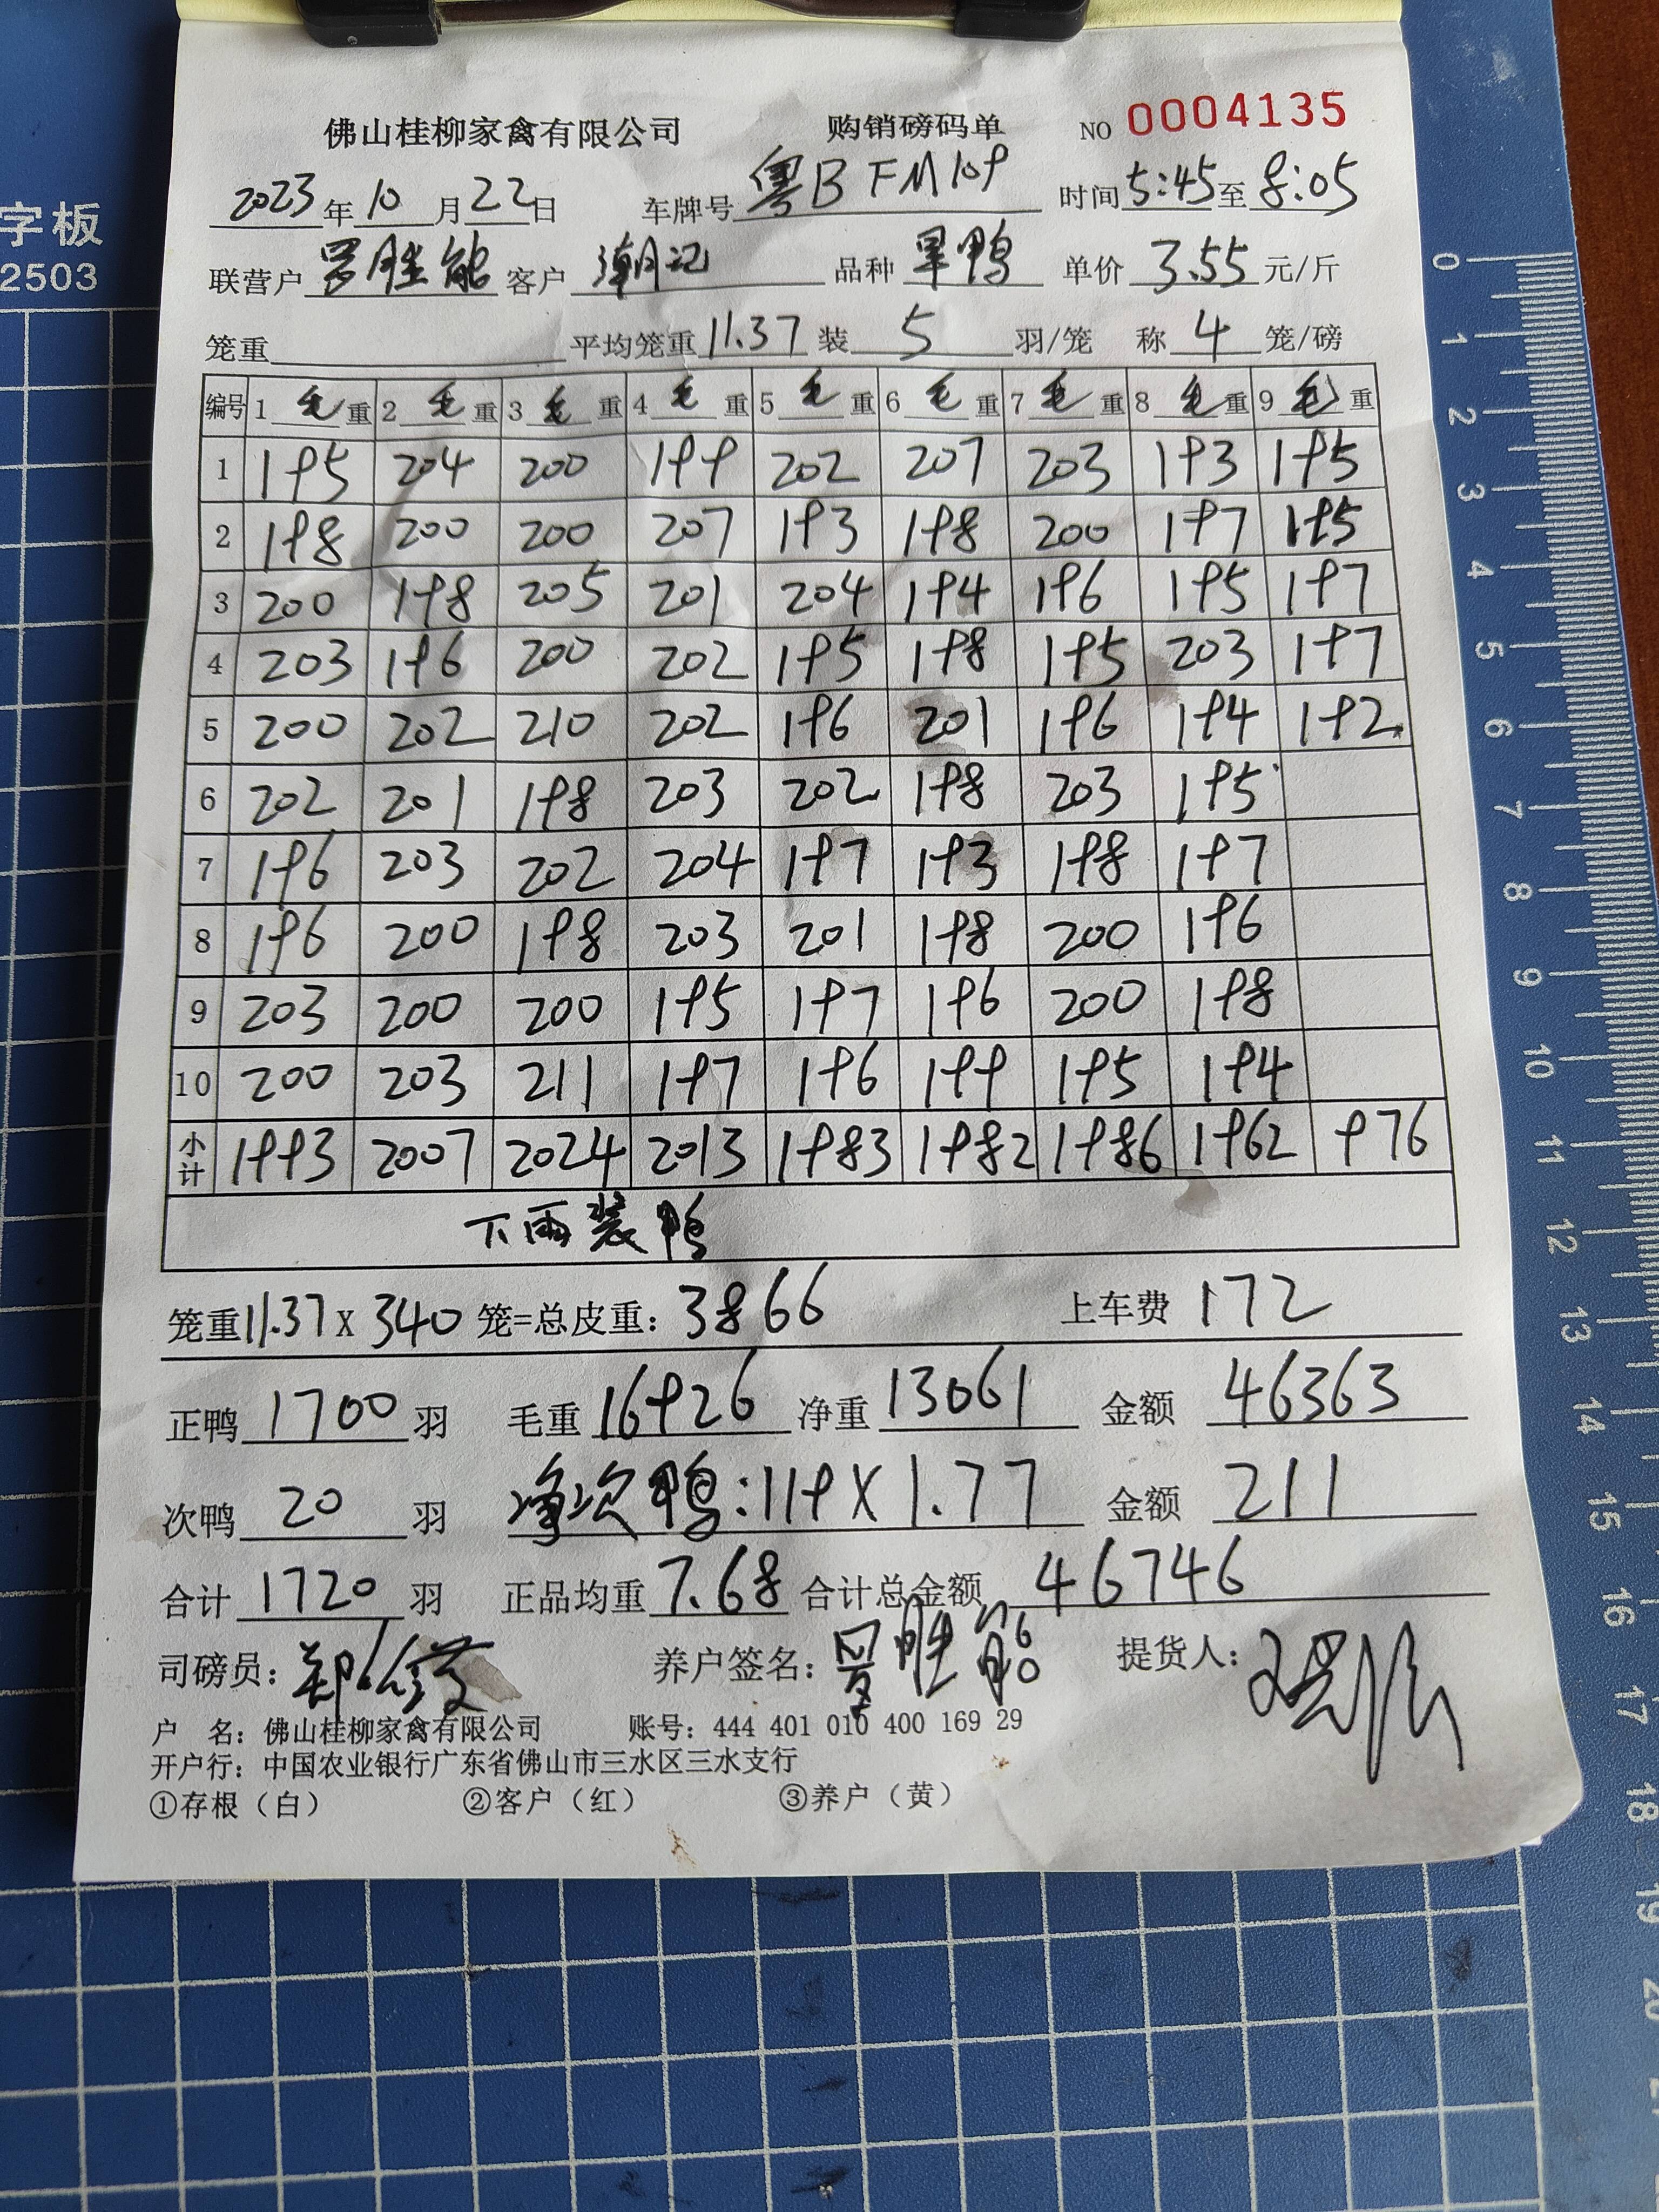 字板
2503
佛山桂柳家禽有限公司 购销磅码单 NO 0004135
2023年10月22日 车牌号 粤BFM109 时间 5:45 至 8:05
联营户 罗胜能 客户 潮记 品种 旱鸭 单价 3.55 元/斤
笼重 平均笼重 11.37 装 5 羽/笼 称 4 笼/磅
编号 1 毛重 2 毛重 3 毛重 4 毛重 5 毛重 6 毛重 7 毛重 8 毛重 9 毛重
1 195 204 200 199 202 207 203 193 195
2 198 200 200 207 193 198 200 197 195
3 200 198 205 201 204 194 196 195 197
4 203 196 200 202 195 198 195 203 197
5 200 202 210 202 196 201 196 194 192
6 202 201 198 203 202 198 203 195
7 196 203 202 204 197 193 198 197
8 196 200 198 203 201 198 200 196
9 203 200 200 195 197 196 200 198
10 200 203 211 197 196 199 195 194
小计 1993 2007 2024 2013 1983 1982 1986 1962 976
下雨装鸭
笼重 11.37 X 340 笼=总皮重: 3866 上车费 172
正鸭 1700 羽 毛重 16926 净重 13061 金额 46363
次鸭 20 羽 净次鸭:119 X 1.77 金额 211
合计 1720 羽 正品均重 7.68 合计总金额 46746
司磅员: 养户签名: 罗胜能 提货人:
户 名: 佛山桂柳家禽有限公司 账号: 444 401 010 400 169 29
开户行: 中国农业银行广东省佛山市三水区三水支行
①存根（白） ②客户（红） ③养户（黄）
0
1
2
3
4
5
6
7
8
9
10
11
12
13
14
15
16
17
18
19
20